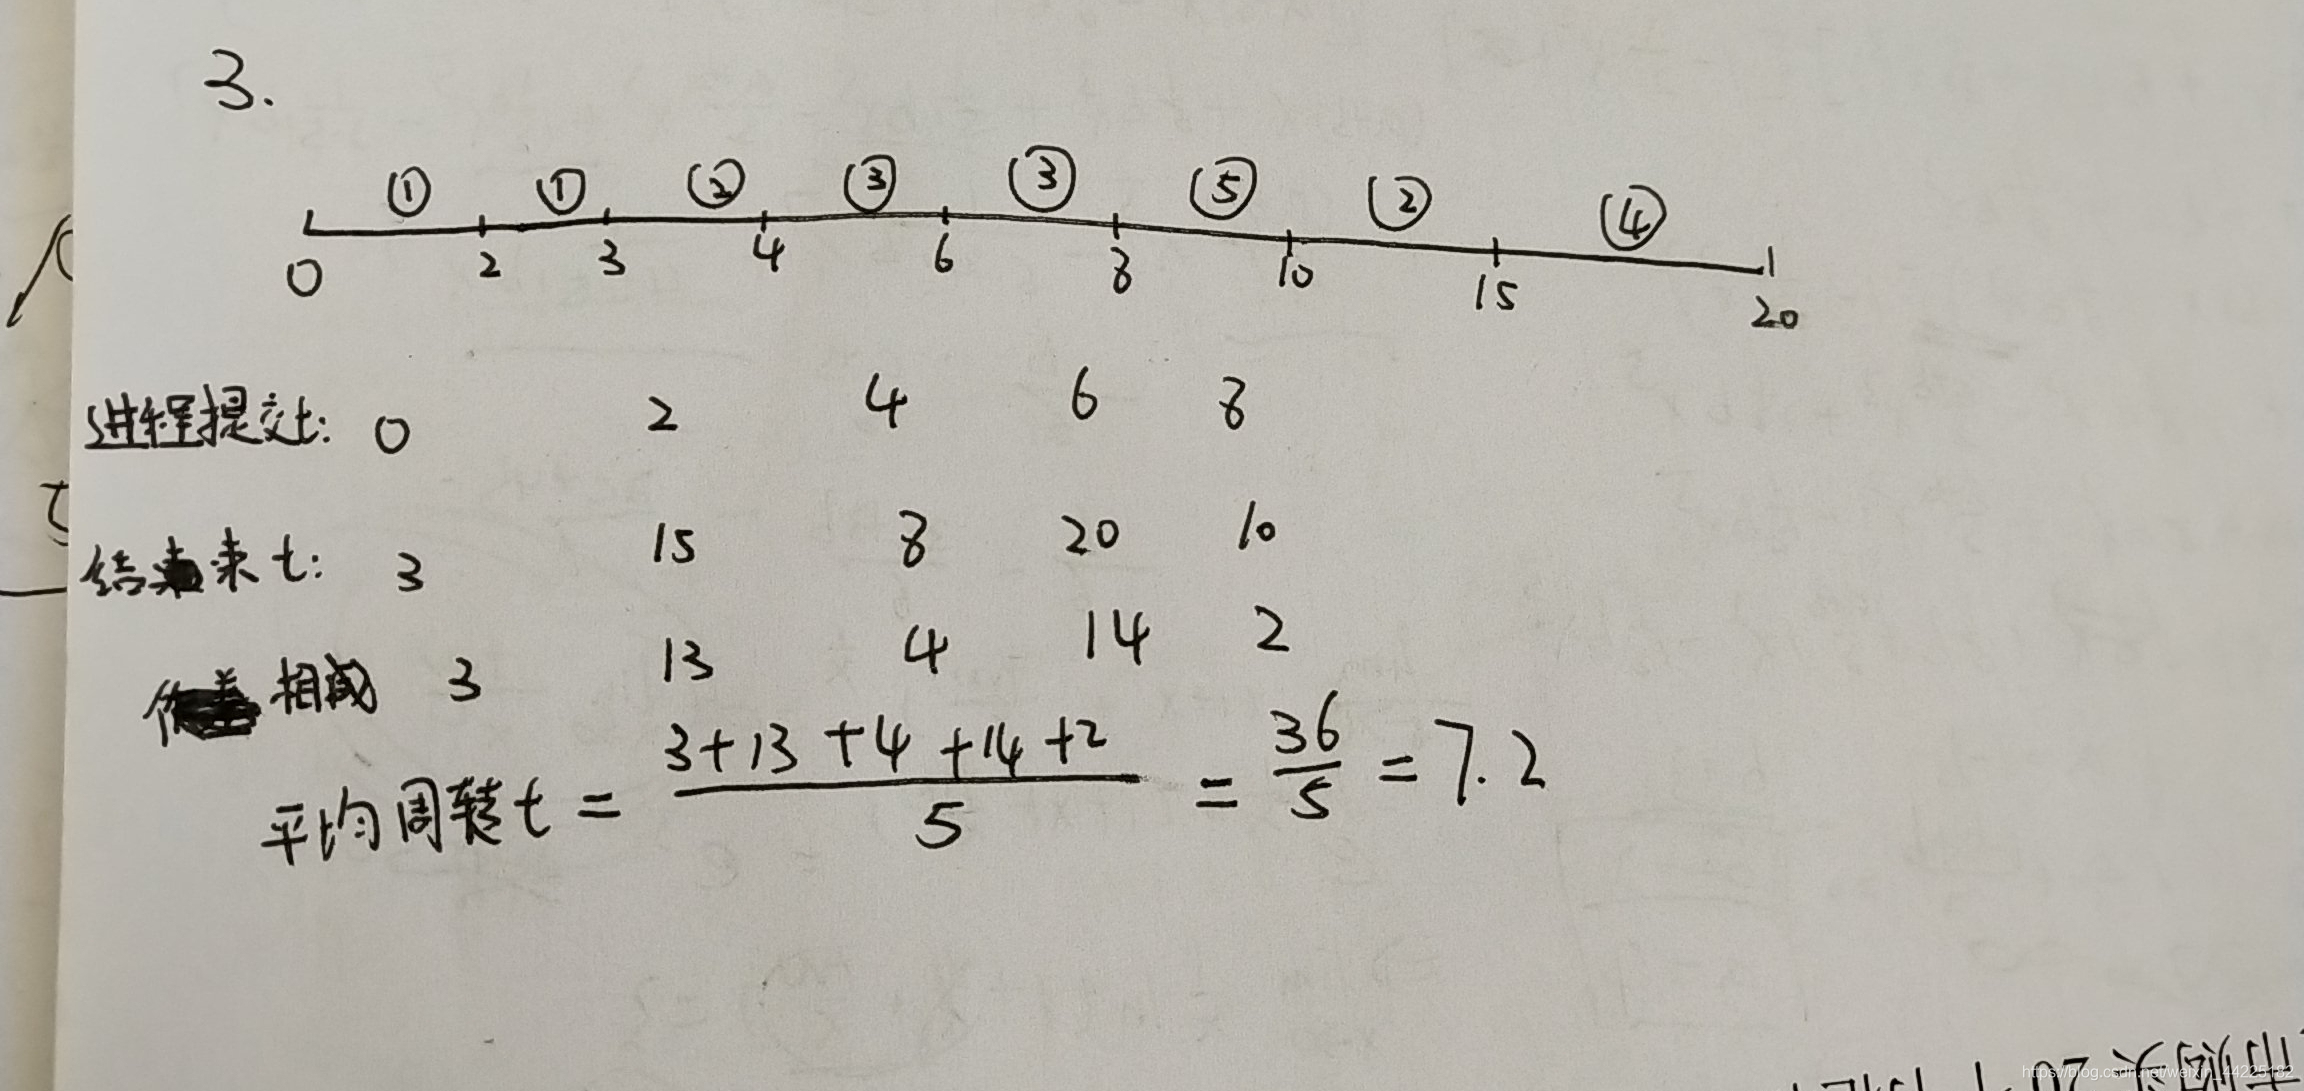 3.
① ① ② ③ ③ ⑤ ② ④
0 2 3 4 6 8 10 15 20
进程提交t: 0 2 4 6 8
结束t: 3 15 8 20 10
相减 3 13 4 14 2
平均周转t = 3+13+4+14+2 / 5 = 36 / 5 = 7.2
https://blog.csdn.net/weixin_44225182